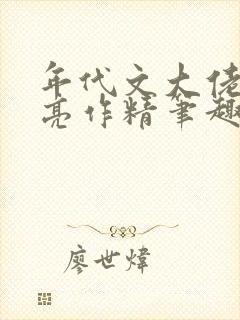 年代文大佬
亮作精笔趣
廖世炜